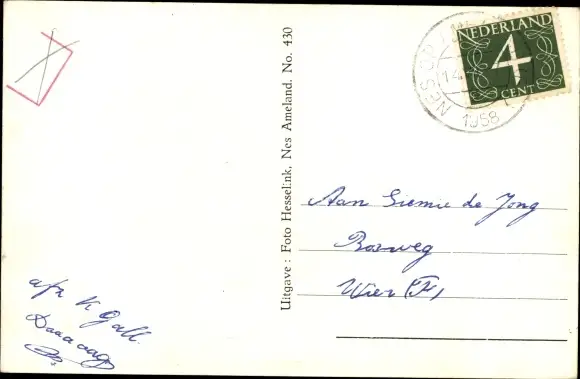 NEDERLAND
4
CENT
NES OP
14
1958
Uitgave: Foto Hesselink, Nes Ameland. No. 430
Aan Siemie de Jong
Bosweg
Wier (Fr)
afz K Gall.
Daaaag